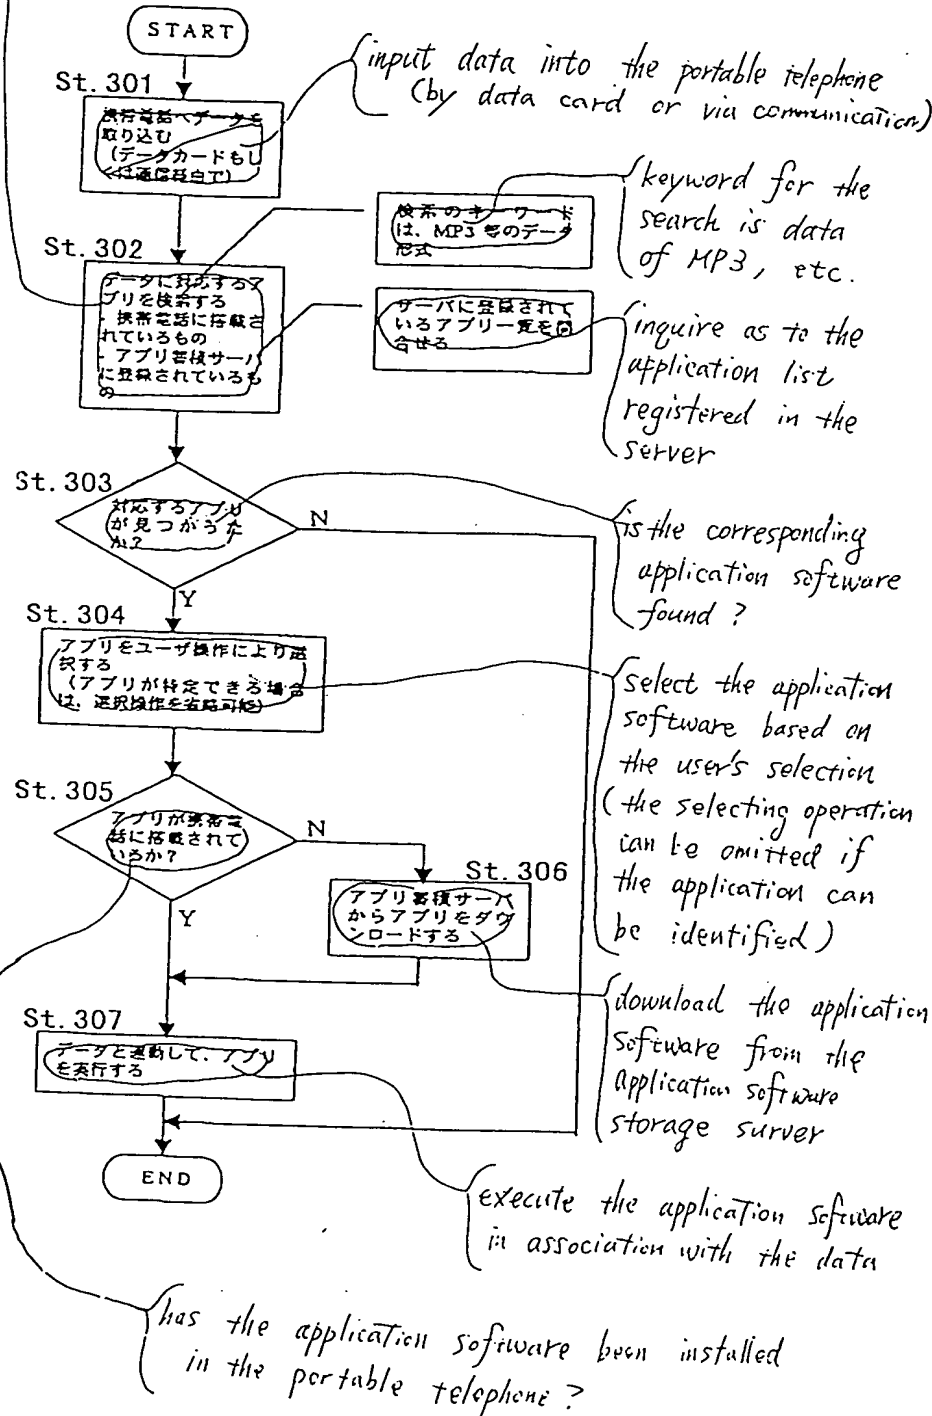 START
St. 301
携帯電話へデータを
取り込む
(データカードもし
くは通信経由で)
input data into the portable telephone
(by data card or via communication)
St. 302
データに対応するア
プリを検索する
- 携帯電話に搭載さ
れているもの
- アプリ蓄積サーバ
に登録されているも
の
検索のキーワード
は、MP3 等のデータ
形式
keyword for the
search is data
of MP3, etc.
サーバに登録されて
いるアプリ一覧を問
合せる
inquire as to the
application list
registered in the
server
St. 303
対応するアプリ
が見つかった
か?
N
Y
is the corresponding
application software
found ?
St. 304
アプリをユーザ操作により選
択する
(アプリが特定できる場合
は、選択操作を省略可能)
select the application
software based on
the user's selection
(the selecting operation
can be omitted if
the application can
be identified)
St. 305
アプリが携帯電
話に搭載されて
いるか?
N
Y
St. 306
アプリ蓄積サーバ
からアプリをダウ
ンロードする
download the application
software from the
application software
storage surver
St. 307
データと連動して、アプリ
を実行する
END
execute the application software
in association with the data
has the application software been installed
in the portable telephone ?